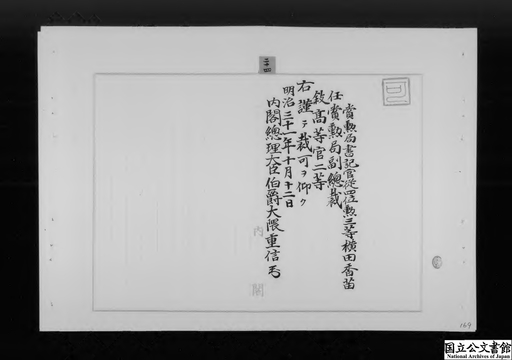 賞勲局書記官従四位勲三等横田香苗
任賞勲局副總裁
敘高等官二等
右謹テ裁可ヲ仰ク
明治三十一年十月十二日
内閣總理大臣伯爵大隈重信
内閣
169
国立公文書館
National Archives of Japan